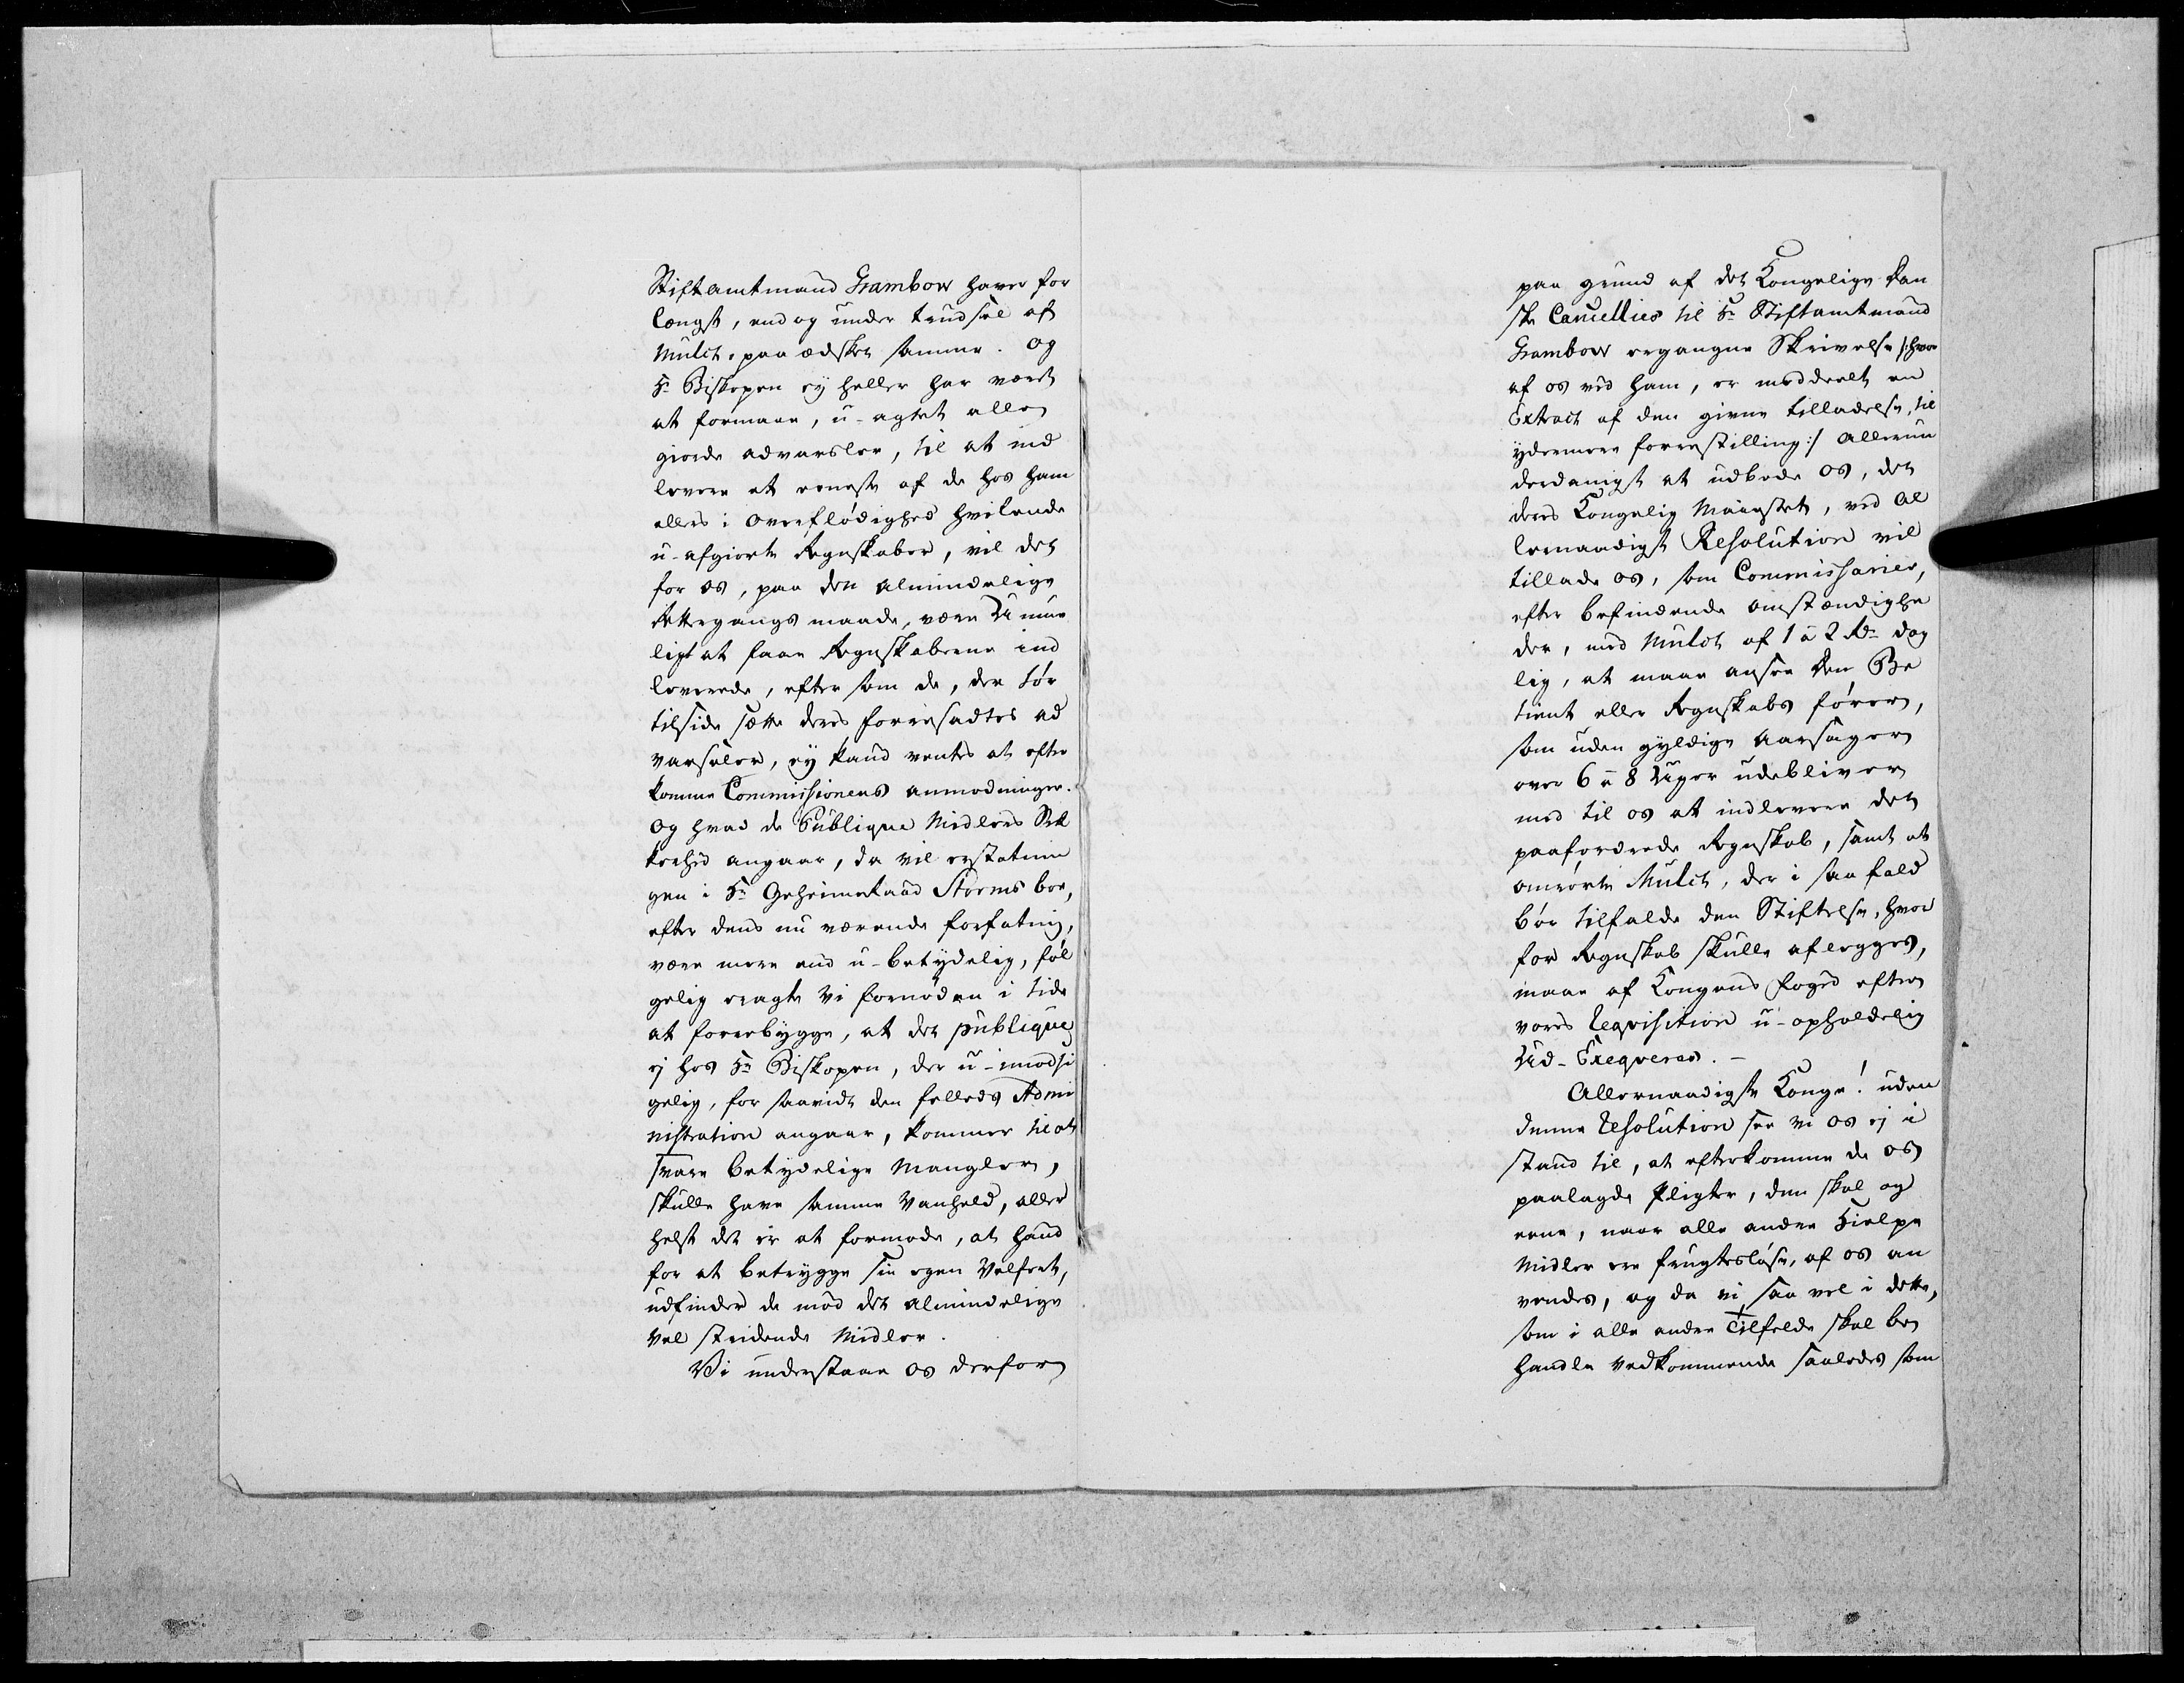 Stiftamtmand Grambow haver for
længst, end og under trudsel af
Mulct, paa ædsket samme. og
Hr Biskopen ej heller har været
at formaae, u-agtet alle
giorde advarsler, til at ind
levere et eeneste af de hos ham
alles i overflødighed hvilende
u-afgiorte Regnskaber, vil det
for os, paa den almindelige
Rettergangs maade, være U mue
ligt at faae Regnskaberne ind
leverede, efter som de, der tør
tilside sætte deres foresadtes ad
varseler, ej kand ventes at efter
komme Commissionens anmodninger.
Og hvad de Publique Midlers Sik
kerhed angaar, da vil erstatnin
gen i Hr Geheimeraad Storms boe,
efter dens nu værende forfatning,
være mere end u-betydelig, føl
gelig eragte vi fornøden i tide
at forrebygge, at det publique
ej hos Hr Biskopen, der u-imodsi
gelig, for saavidt den felleds Admi
nistration angaar, kommer til at
svare betydelige Mangler,
skulle have samme Vanheld, aller
helst det er at formode, at hand
for at betrygge sin egen Velfert,
udfinder de mod det almindelige
Vel stridende Midler.
Vi understaae os derfor
paa grund af det Kongelige Dan
ske Cancellies til Hr Stiftamtmand
Grambow ergangne Skrivelse /: hvor
af os ved ham, er meddeelt en
Extract af den givne tilladelse, til
ydermere forrestilling :/ Allerun
derdanigst at udbede os, det
deres Kongelig Maiestet, ved Al
lernaadigst Resolution vil
tillade os, som Commissarier,
efter befindende omstændighe
der, med Mulct af 1 à 2 Rdr dag
lig, at maae ansee den Be
tient eller Regnskabs fører,
som uden gyldige Aarsager
over 6 à 8 Uger udebliver
med til os at indlevere det
paafordrede Regnskab, samt at
omrørte Mulct, der i saa fald
bør tilfalde den Stiftelse, hvor
for Regnskab skulle aflegges,
maae af Kongens foged efter
vores Reqvisition u-opholdelig
Ud-Exeqveres. -
Allernaadigste Konge! uden
denne Resolution see vi os ej i
stand til, at efterkomme de os
paalagde Pligter, den skal og
eene, naar alle andre Hielpe
Midler ere frugtesløse, af os an
vendes, og da vi, saa vel i dette,
som i alle andre Tilfælde skal be
handle Vedkommende saaledes som